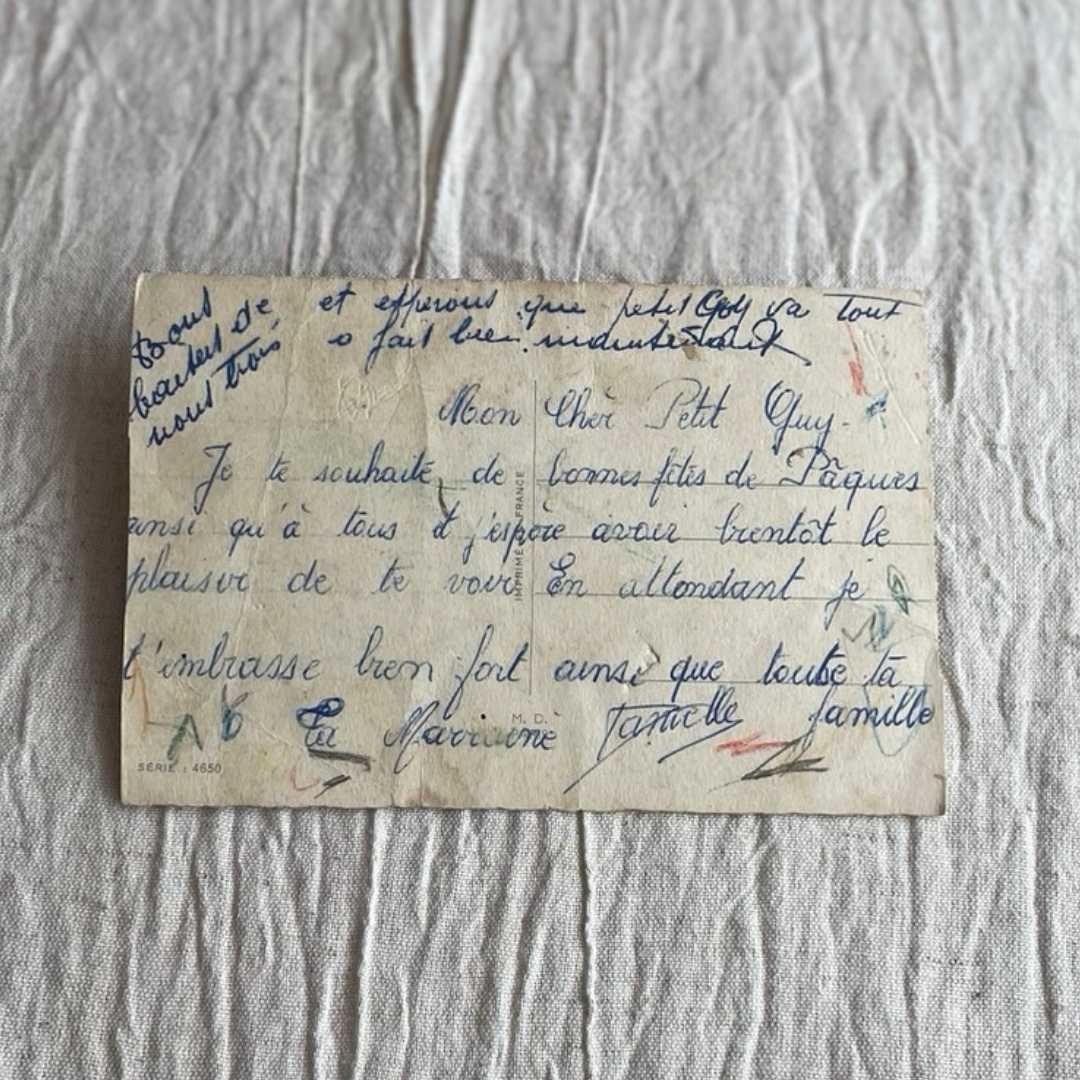 Bons
baisers de
nous trois
et espérons que petit Guy va tout
a fait bien maintenant
Mon Cher Petit Guy.
Je te souhaite, de bonnes fêtes de Pâques
ainsi qu'à tous et j'espère avoir bientôt le
plaisir de te voir En attendant je
t'embrasse bien fort ainsi que toute ta
famille
Ta Marraine
IMPRIMÉ EN FRANCE
M. D.
SÉRIE : 4650